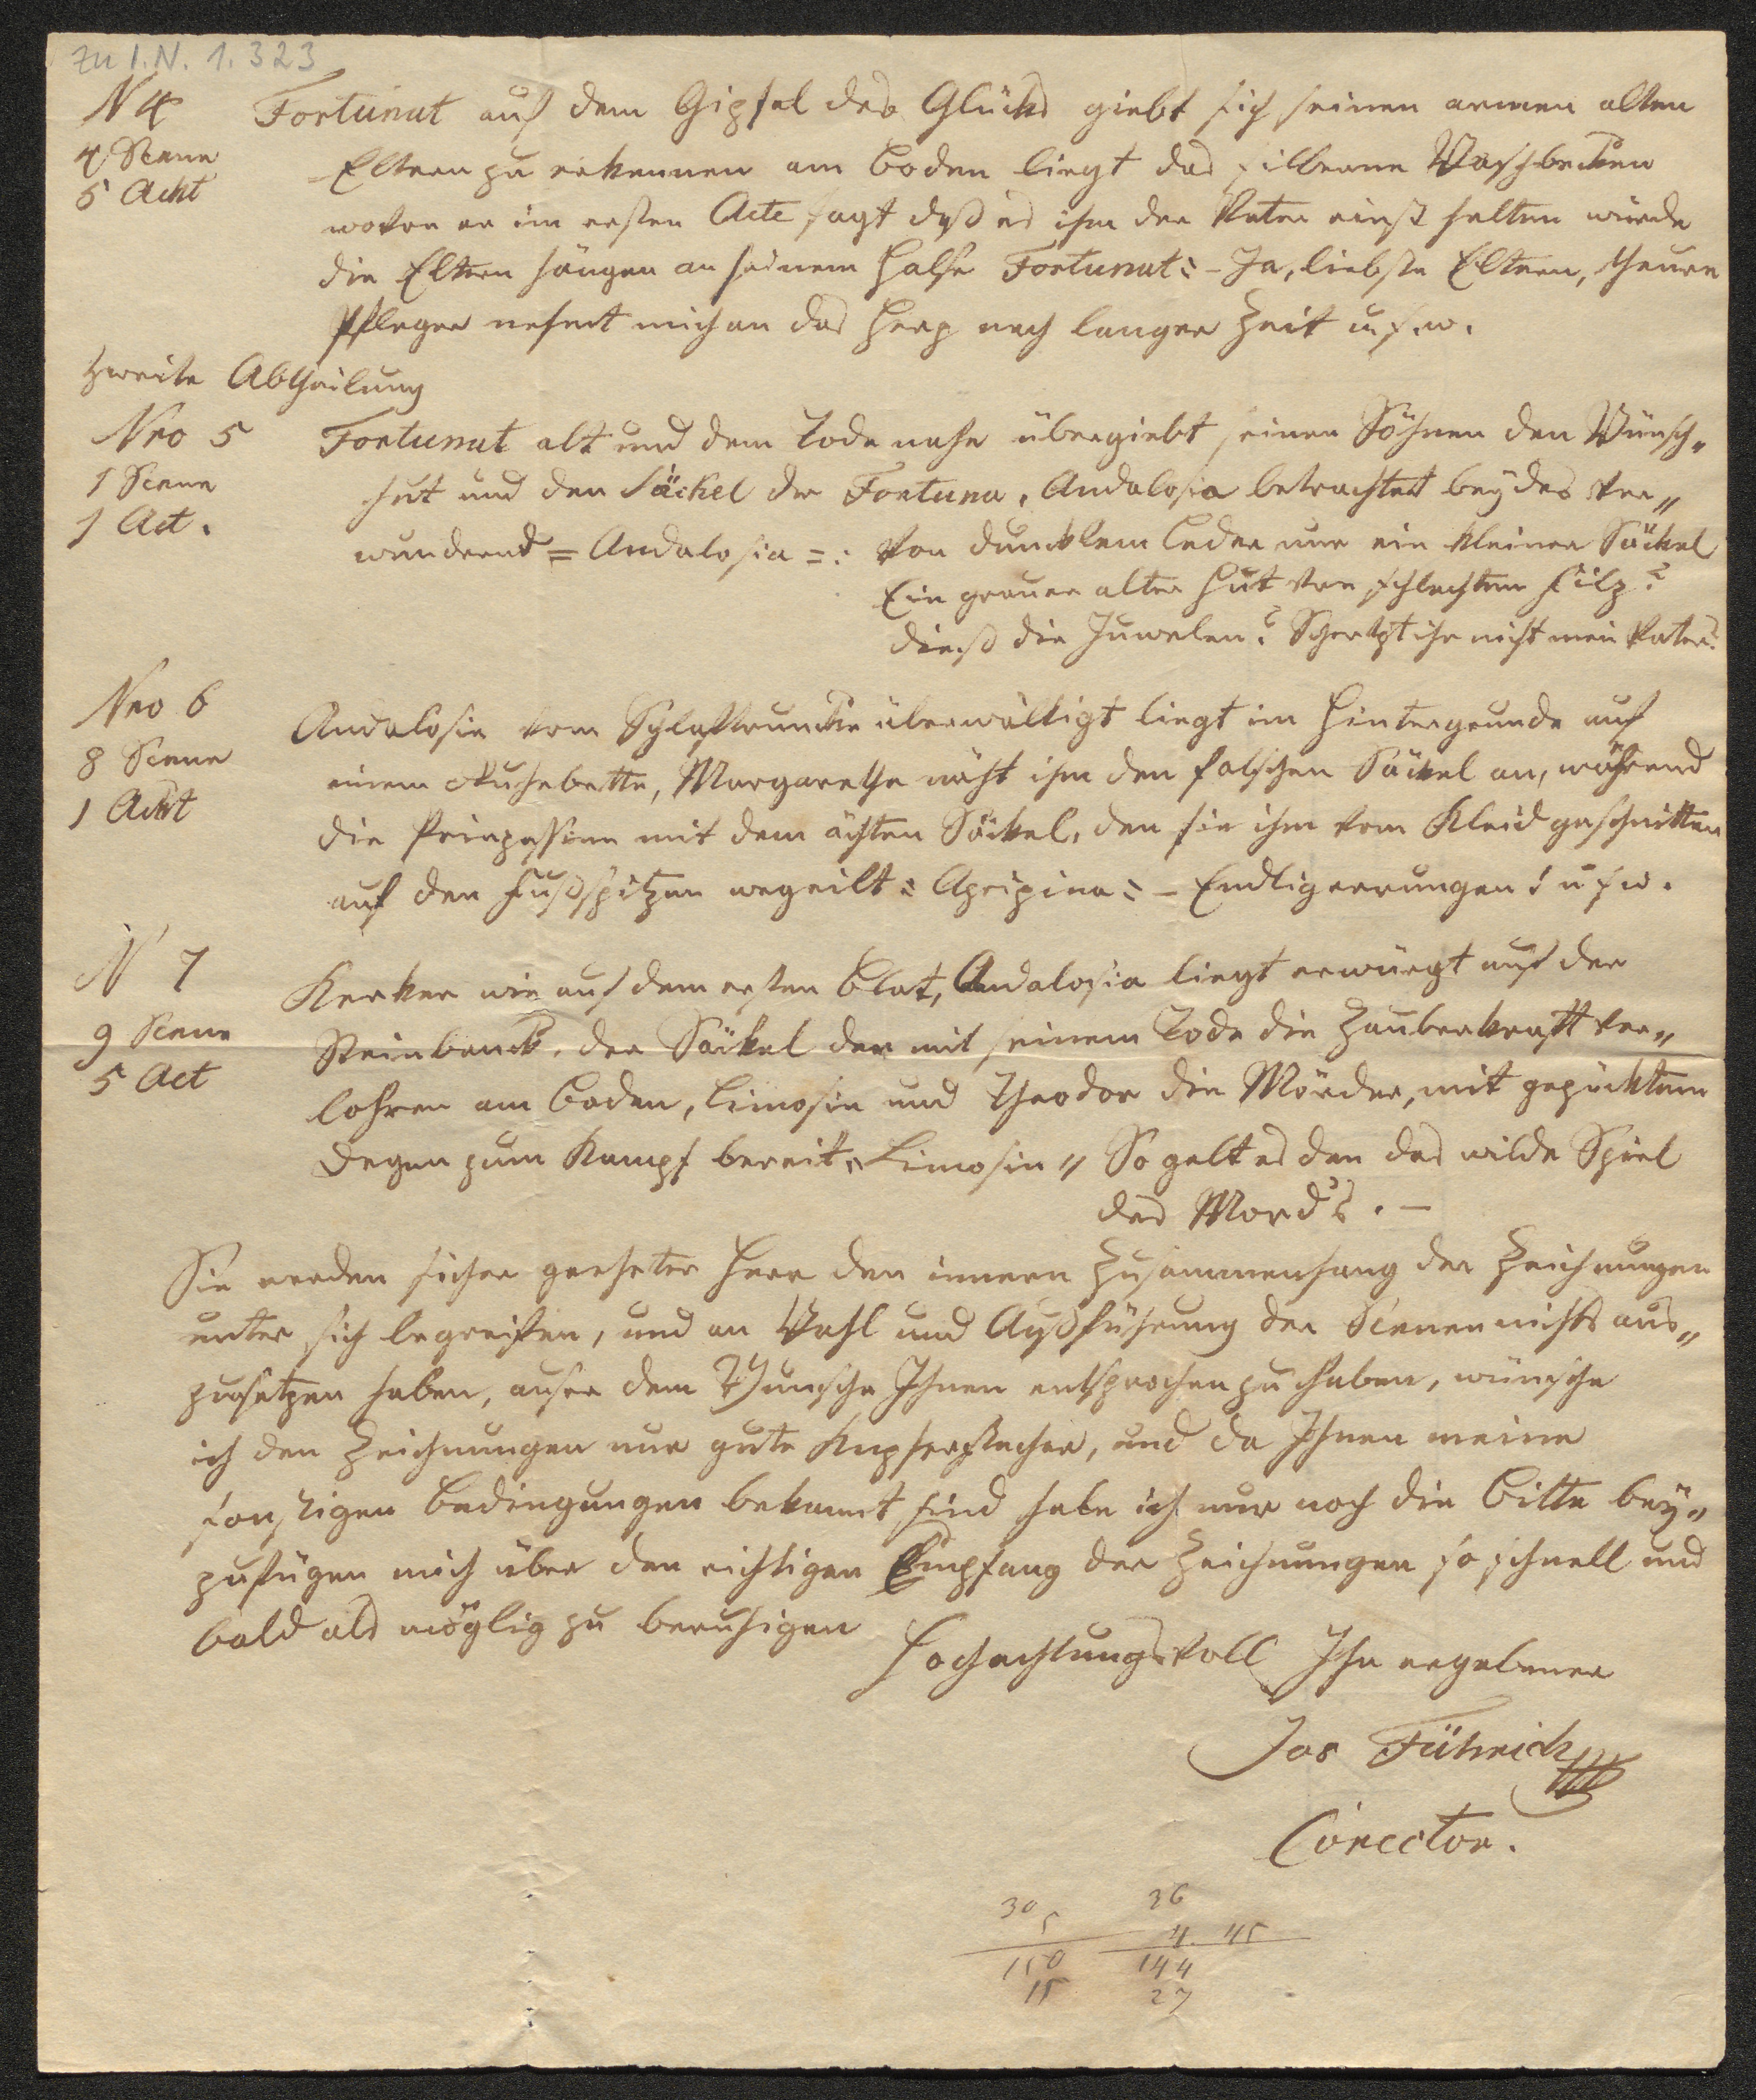 zu I.N. 1.323
N 4 Fortunat auf dem Gipfel des Glücks giebt sich seinen armen alten
4 Scene Eltern zu erkennen am Boden liegt das silberne Waschbecken
5 Ackt wovon er im ersten Acte sagt daß es ihm der Vater einst halten würde
die Eltern hängen an seinem Halse Fortunat: – Ja, liebste Eltern, theure
Pfleger nehmt mich an das Herz nach langer Zeit u.s.w.
Zweite Abtheilung
Nro 5 Fortunat alt und dem Tode nahe übergiebt seinen Söhnen den Wünsch„
1 Scene hut und den Säckel der Fortuna, Andalosia betrachtet beydes ver„
1 Act. wundernd = Andalosia =: Von duncklem Leder nur ein kleiner Säckel
Ein grauer alter Hut von schlechtem Filz?
dieß die Juwelen? Schertzt ihr nicht mein Vater?
Nro 6 Andalosia vom Schlaftruncke überwältigt liegt im Hintergrunde auf
8 Scene einem Ruhebette, Margarethe näht ihm den falschen Säckel an, während
1 Ackt die Prinzessinn mit dem ächten Säckel, den sie ihm vom Kleid geschnitten
auf den Fußspitzen wegeilt: Agripina: – Endtigerrungen! u s w.
N 7 Kerker wie auf dem ersten Blat, Andalosia liegt erwürgt auf der
9 Scene Steinbanck. der Säckel der mit seinem Tode die Zauberkraft ver„
5 Act lohren am Boden, Limosin und Theodor die Mörder, mit gezücktem
Degen zum Kampf bereit „Limosin„ So gelt es den das wilde Spiel
des Mords. –
Sie werden sicher geehrter Herr den innern Zusammenhang der Zeichnungen
unter sich begreifen, und an Wahl und Außführung der Scenen nichts aus„
zusetzen haben, auser dem Wunsche Ihnen entsprochen zu haben, wünsche
ich den Zeichnungen nur gute Kupferstecher, und da Ihnen meine
sonstigen Bedingungen bekannt sind habe ich nur noch die Bitte bey„
zufügen mich über den richtigen Empfang der Zeichnungen so schnell und
bald als möglig zu beruhigen
Hochachtungsvoll Ihr ergebener
Jos Führich
Corector.
30 36
5 4. 45
150 144
15 27